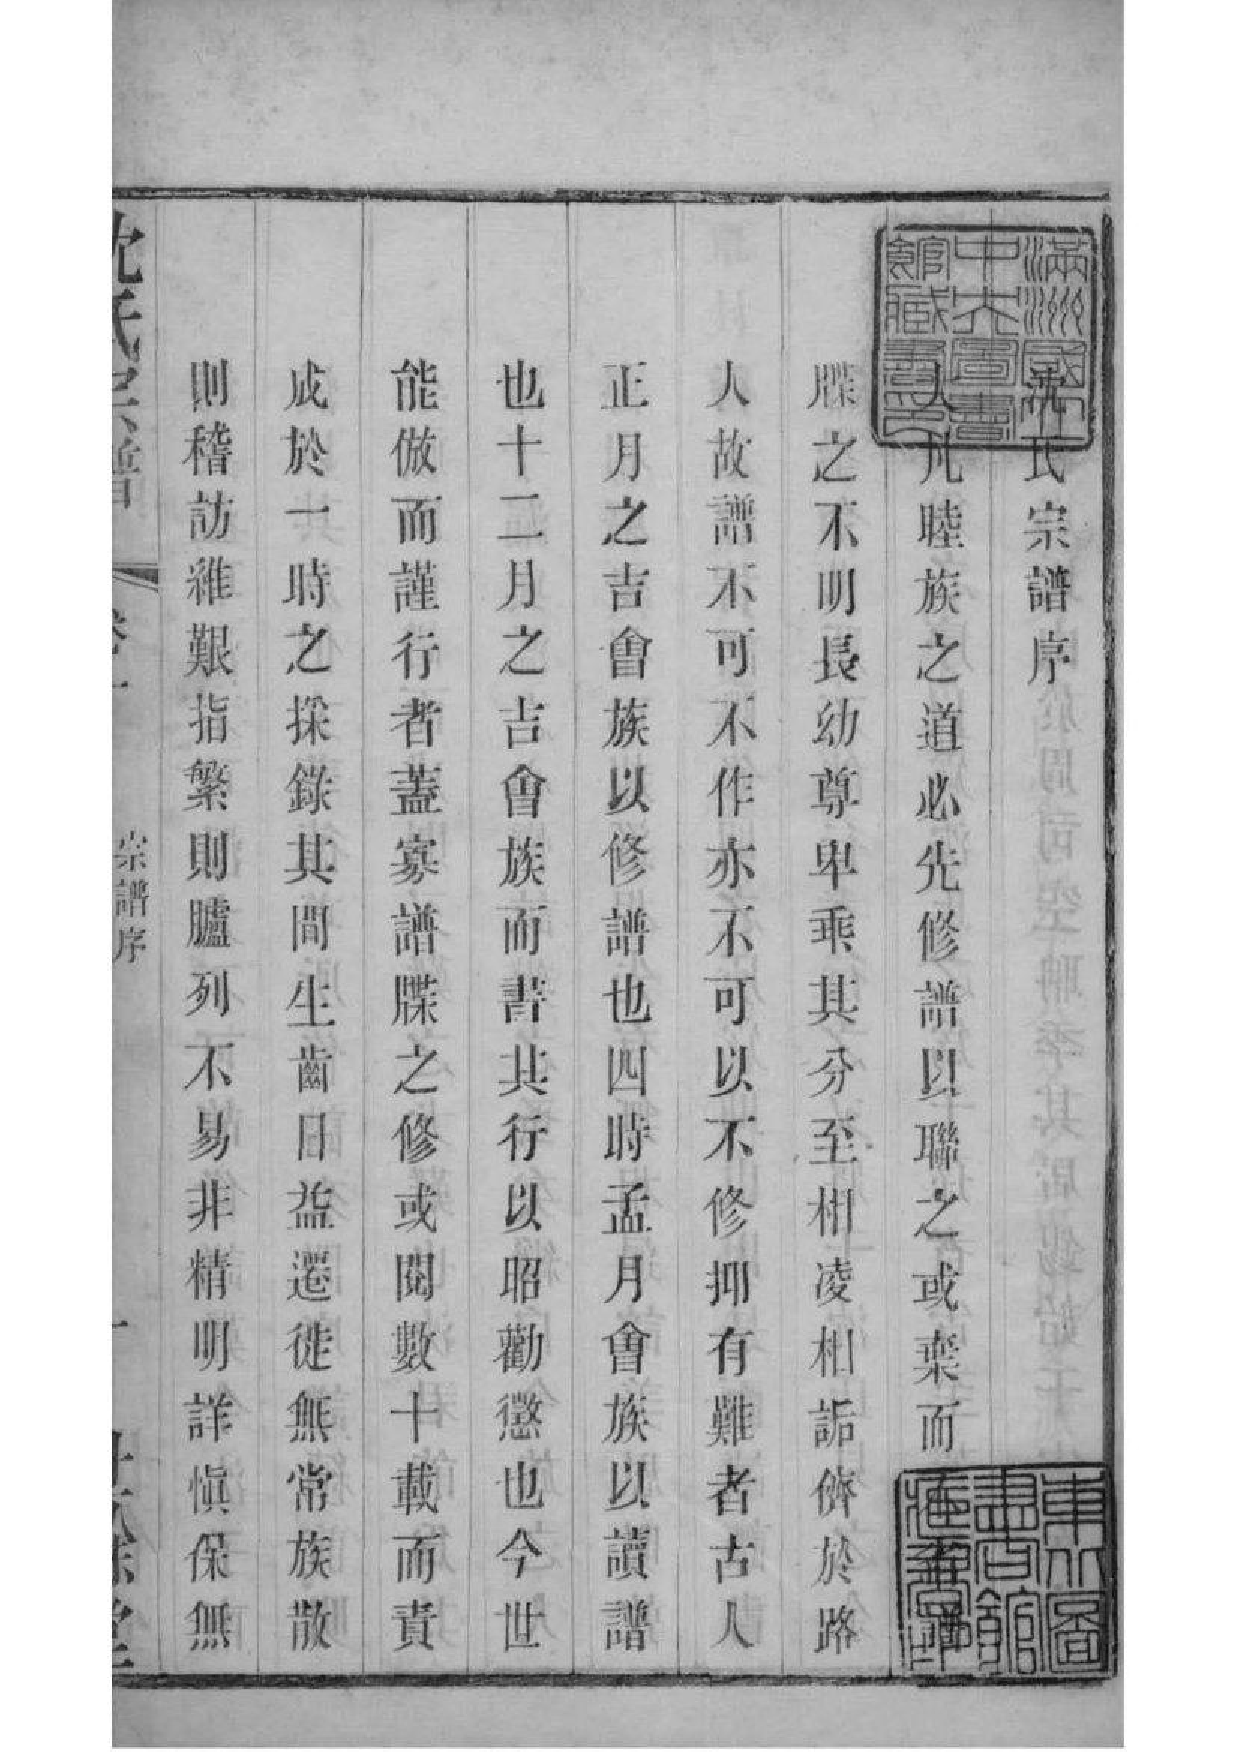 沈氏宗譜序
人凡睦族之道必先修譜以聯之或棄而
牒之不明長幼尊卑乖其分至相凌相詬儕於路
人故譜不可不作亦不可以不修抑有難者古人
正月之吉會族以修譜也四時孟月會族以讀譜
也十二月之吉會族而書其行以昭勸懲也今世
能倣而謹行者蓋寡譜牒之修或閱數十載而責
成於一時之採錄其間生齒日益遷徙無常族散
則稽訪維艱指繁則臚列不易非精明詳慎保無
沈氏宗譜
卷一
宗譜序
一
滿洲國
中央圖書
館藏書印
東北圖
書館